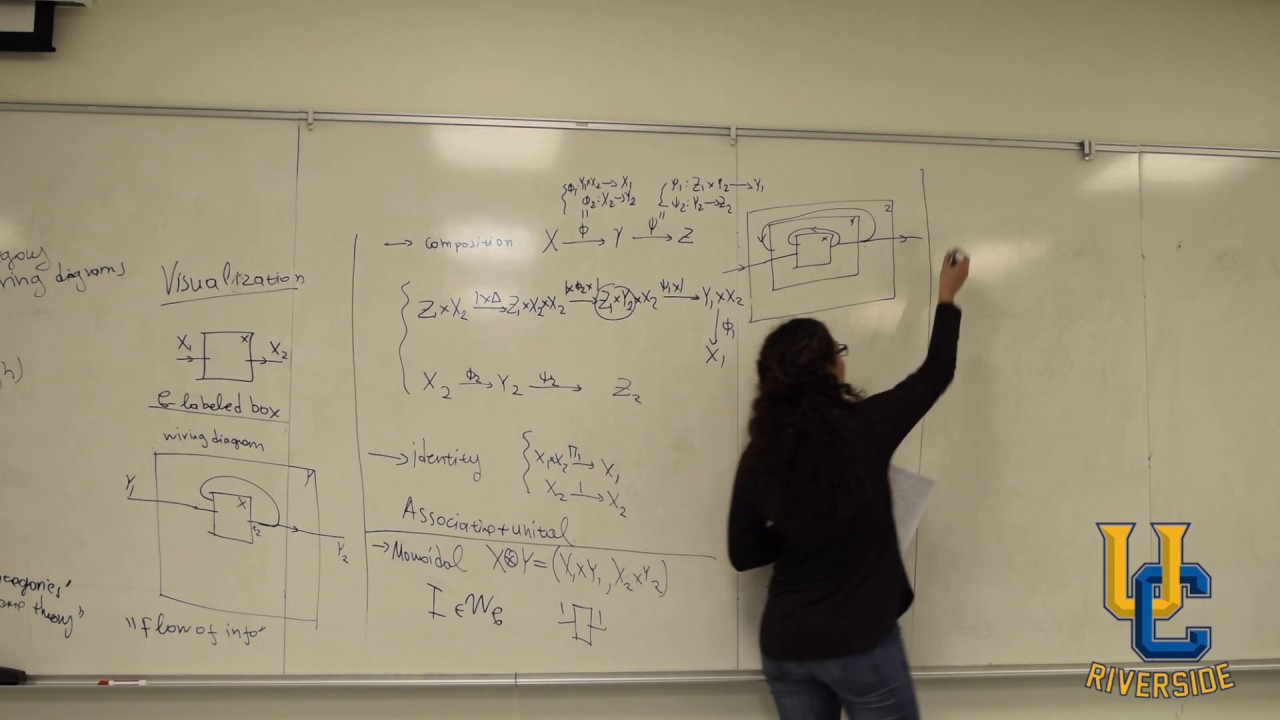 ring diagrams
Visualization
X₁ X X₂
C labeled box
wiring diagram
Y₁ Y X Y₂
"flow of info"
→ composition X —ϕ→ Y —ψ→ Z
{ϕ₁: Y₁×X₂ → X₁
ϕ₂: X₂ → Y₂
{ψ₁: Z₁×Y₂ → Y₁
ψ₂: Y₂ → Z₂
Z₁×X₂ —1×Δ→ Z₁×X₂×X₂ —1×ϕ₂×1→ Z₁×Y₂×X₂ —ψ₁×1→ Y₁×X₂
↓ϕ₁
X₁
X₂ —ϕ₂→ Y₂ —ψ₂→ Z₂
→ identity
{X₁×X₂ —π₁→ X₁
X₂ —1→ X₂
Associative + unital
→ Monoidal X⊗Y = (X₁×Y₁, X₂×Y₂)
I ∈ W_C
1 1
Z
Y
X
UC
RIVERSIDE